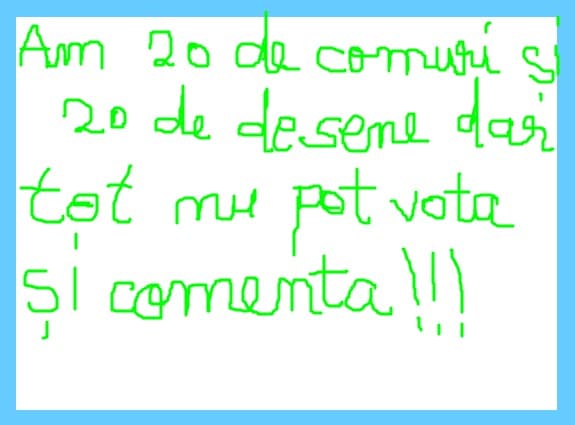 Am 20 de comuri și
20 de desene dar
tot nu pot vota
și comenta!!!